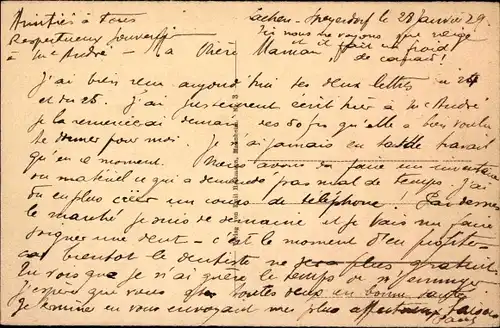 Amitiés à tous
Respectueux souvenir
à Mme André —
Lachen-Speyerdorf le 28 janvier 29
Ici nous ne voyons que neige
et il fait un froid
de canard!
Ma chère Maman,
J'ai bien reçu aujourd'hui tes deux lettres du 24
et du 25. J'ai justement écrit hier à Mme André
je la remercierai demain des 50 frs qu'elle a bien voulu
te donner pour moi. Je n'ai jamais eu tant de travail
qu'en ce moment. Nous avons dû faire un inventaire
du matériel ce qui a demandé pas mal de temps. J'ai
du en plus créer un cours de téléphone! Par dessus
le marché je suis de semaine et je vais me faire
soigner une dent — c'est le moment d'en profiter
car bientôt le dentiste ne sera plus gratuit
Tu vois que je n'ai guère le temps de m'ennuyer
J'espère que vous êtes toutes deux en bonne santé
Je termine en vous envoyant mes plus affectueux baisers